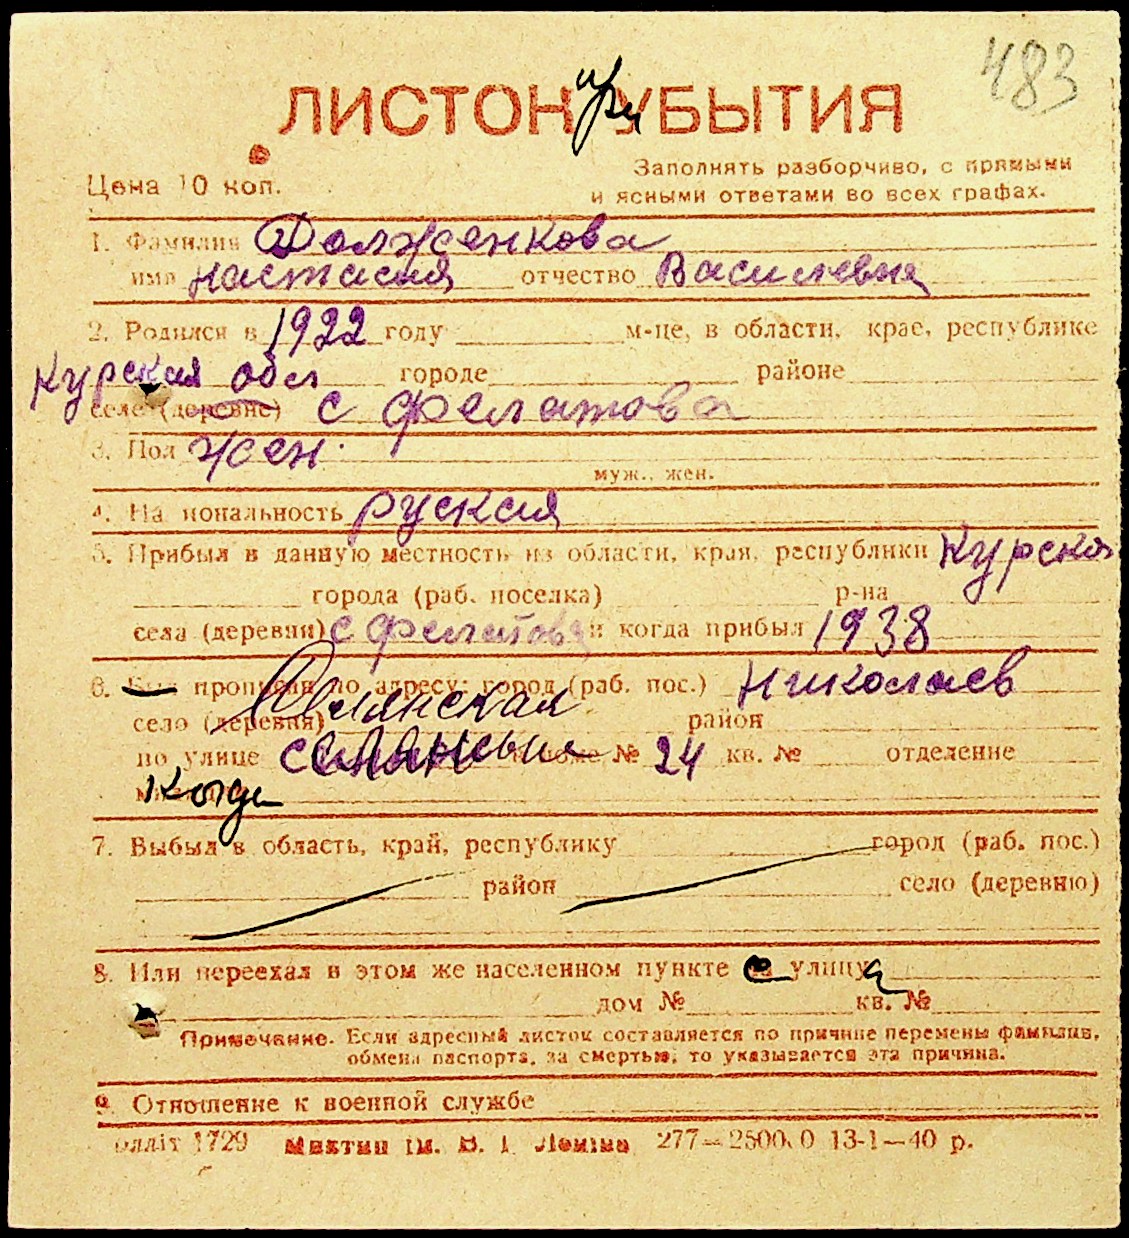 483
ЛИСТОК при УБЫТИЯ
Цена 10 коп.
Заполнять разборчиво, с прямыми
и ясными ответами во всех графах.
1. Фамилия Долженкова
имя настасия отчество Василевна
2. Родился в 1922 году м-це, в области, крае, республике
Курская обл городе районе
селе (деревне) с Филатова
3. Пол жен.
муж., жен.
4. Национальность руская
5. Прибыл в данную местность из области, края, республики Курская
города (раб. поселка) р-на
села (деревни) с Филатова и когда прибыл 1938
6. Был прописан по адресу: город (раб. пос.) Николаев
село (деревня) район
по улице № 24 кв. № отделение
Когда
7. Выбыл в область, край, республику город (раб. пос.)
район село (деревню)
8. Или переехал в этом же населенном пункте с улицы
дом № кв. №
Примечание. Если адресный листок составляется по причине перемены фамилии,
обмена паспорта, за смертью, то указывается эта причина.
9. Отношение к военной службе
1729 ім. В. І. Леніна 277—2500 13-1—40 р.